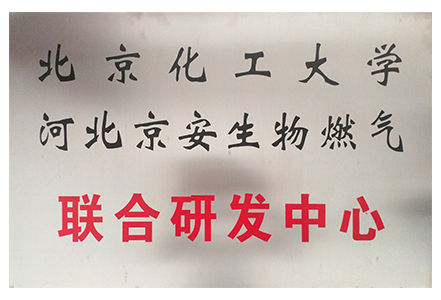 北京化工大学
河北京安生物燃气
联合研发中心